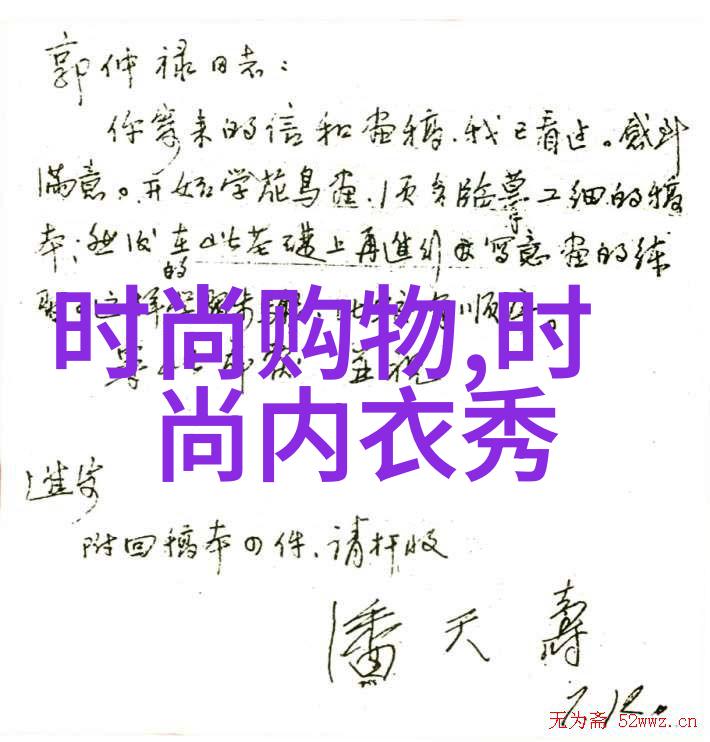 郭仲禄同志：
你寄来的信和画稿，我已看过。感到
满意。开始学花鸟画，须多临摹工细的稿
本；然后在此基础上再进行写意画的练
的
时尚购物,时
尚内衣秀
进步
附回稿本四件，请检收
潘天寿
7.12.
无为斋 52wwz.cn